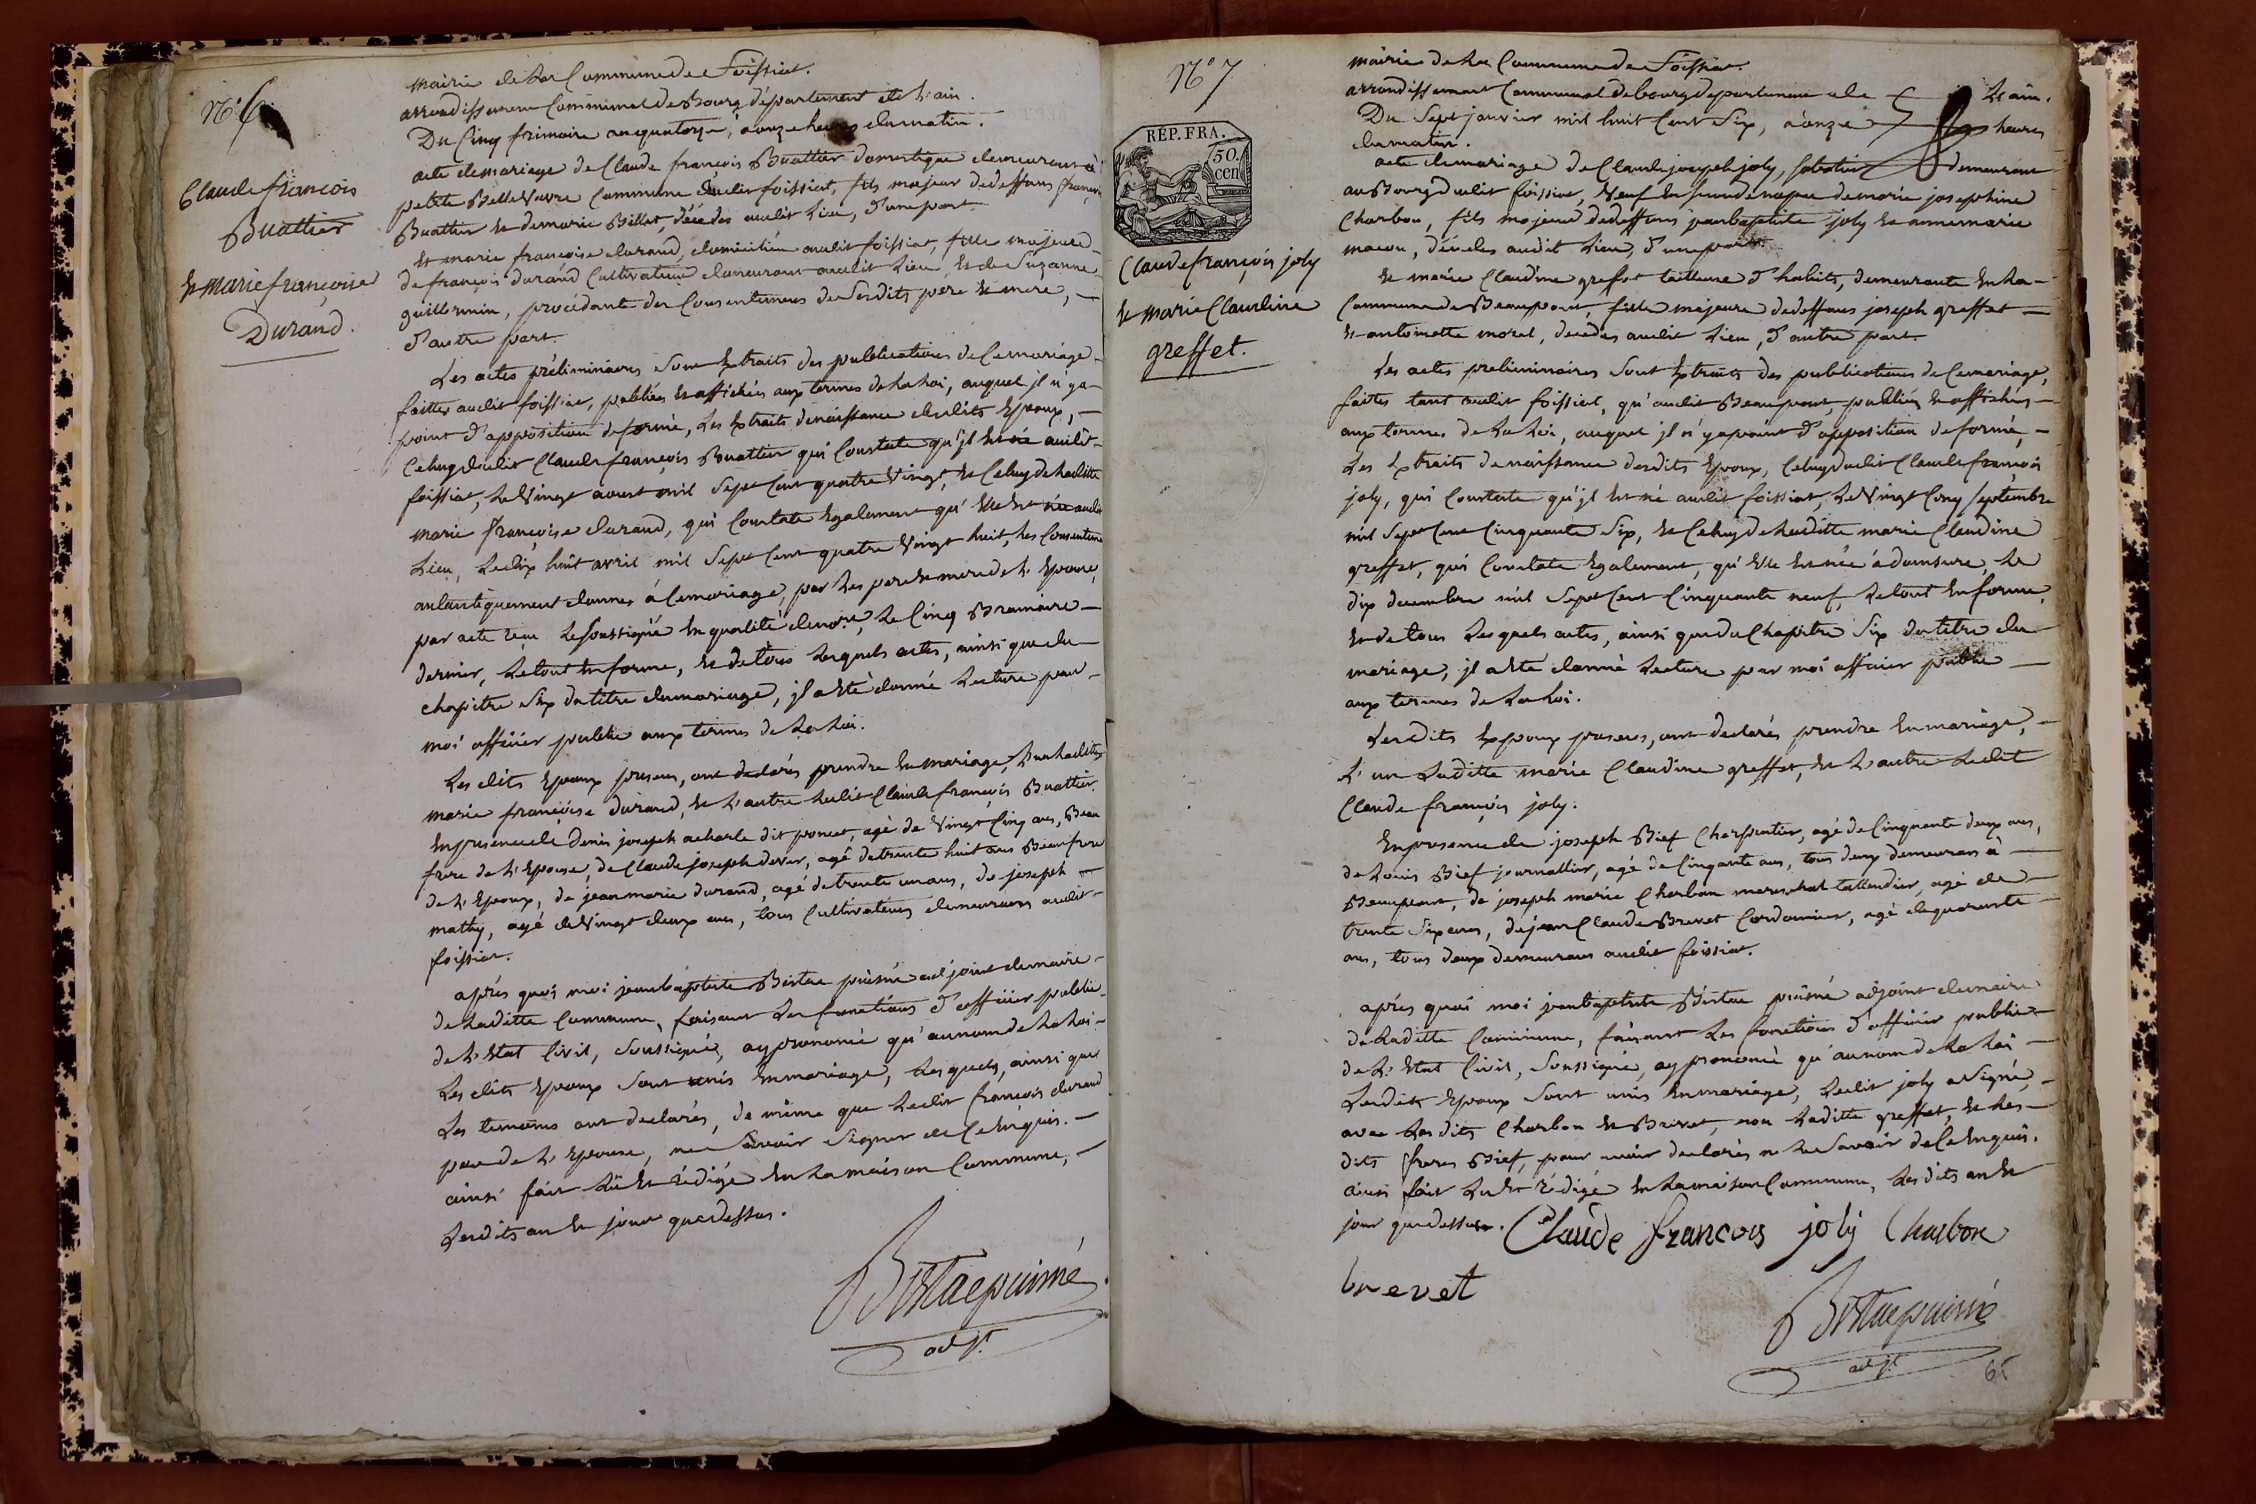 N° 6
Claude françois
Buattier
et marie françoise
Durand.
mairie de la Commune de Foissiat.
arrondissement Communal de Bourg département de l'ain.
Du Cinq frimaire an quatorze, à onze heures du matin.
acte de mariage de Claude françois Buattier domestique demeurant à
petite Bellevavre Commune dudit foissiat, fils majeur de deffuns françois
Buattier et de marie Billet, décédés audit Lieu, d'une part.
et marie françoise durand, domiciliée audit foissiat, fille majeure
de françois durand Cultivateur demeurant audit Lieu, et de Suzanne
guillermin, procédante du Consentement de Sesdits père et mere,
d'autre part.
Les actes préliminaires sont Extraits des publications de Ce mariage
faittes audit foissiat, publiées et affichées aux termes de la Loi, auquel il n'y a
point d'apposition de formé, Les Extraits de naissance desdits Epoux,
Celuy dudit Claude françois Buattier qui Constate qu'il est né audit
foissiat, le Vingt aoust mil Sept Cent quatre Vingt, et Celuy de laditte
marie françoise durand, qui Constate Egalement qu'Elle est née audit
Lieu, le dix huit avril mil Sept Cent quatre Vingt huit, les Consentemens
autantiquement donnés à Ce mariage, par les pere et mere de l'Epouse,
par acte reçu le soussigné en qualité de nore, le Cinq Brumaire
dernier, le tout en forme, et de tous lesquels actes, ainsi que du
chapitre Six du titre du mariage, il a été donné Lecture par
moi officier public aux termes de la Loi.
Les dits Epoux presens, ont déclarés prendre en mariage, l'un laditte
marie françoise durand, et l'autre ledit Claude françois Buattier.
En presence de Denis joseph acharle dit poncet, agé de Vingt Cinq ans, Beau
frere de l'Epouse, de Claude joseph dever, agé de trente huit ans Beaufrere
de l'Epoux, de jean marie durand, agé de trente un ans, de joseph
mathy, agé de Vingt deux ans, tous Cultivateurs demeurans audit
foissiat.
après quoi moi jean baptiste Bertae puisné adjoint du maire
de laditte Commune, faisant les fonctions d'officier public
de l'Etat Civil, soussigné, ay prononcé qu'au nom de la Loi
les dits Epoux sont unis en mariage, lesquels, ainsi que
les temoins ont declarés, de même que ledit françois durand
pere de l'Epouse, ne Savoir Signer de Ce Enquis.
ainsi fait Lu et rédigé en la maison Commune,
lesdits an et jour que dessus.
Bertae puisné
adjt.
N° 7
REP. FRA.
50.
cen
Claude françois joly
et marie Claudine
greffet.
mairie de la Commune de Foissiat.
arrondissement Communal de bourg departement de L'ain.
Du Sept janvier mil huit Cent Six, à onze heures
du matin.
acte de mariage de Claude joseph joly, sabotier demeurant
au Bourg dudit foissiat, Veuf en secondes noces de marie josephine
Charbon, fils majeur de deffuns jean baptiste joly et anne marie
macon, décédés audit Lieu, d'une part.
et marie Claudine greffet tailleuse d'habits, demeurante en la
Commune de Beaupont, fille majeure de deffuns joseph greffet
et antoinette morel, decedés audit Lieu, d'autre part.
Les actes preliminaires sont Extraits des publications de Ce mariage,
faites tant audit foissiat, qu'audit Beaupont, publiées et affichées
aux termes de la Loi, auquel il n'y a point d'apposition de formé,
Les Extraits de naissance desdits Epoux, Celuy dudit Claude françois
joly, qui Constate qu'il est né audit foissiat, le Vingt Cinq septembre
mil Sept Cent Cinquante Six, et Celuy de laditte marie Claudine
greffet, qui Constate Egalement, qu'Elle est née à domsure, le
dix decembre mil Sept Cent Cinquante neuf, le tout en forme,
et de tous lesquels actes, ainsi que du Chapitre Six du titre du
mariage, il a été donné Lecture par moi officier public
aux termes de la Loi.
Lesdits Expoux presens, ont declarés prendre en mariage,
L'un Laditte marie Claudine greffet, et L'autre Ledit
Claude françois joly.
En presence de joseph Bief Charpentier, agé de Cinquante deux ans,
de Louis Bief journallier, agé de Cinqante ans, tous deux demeurans à
Beaupont, de joseph marie Charbon marechal taillandier, agé de
trente Six ans, de jean Claude Brevet Cordonnier, agé de quarante
ans, tous deux demeurans audit foissiat.
après quoi moi jean baptiste Bertae puisné adjoint du maire
de laditte Commune, faisant les fonctions d'officier public
de l'Etat Civil, Soussigné, ay prononcé qu'au nom de la Loi
Lesdits Epoux sont unis en mariage, ledit joly a Signé,
avec les dits Charbon et Brevet, non Laditte greffet, et les
dits freres Bief, pour avoir declarés ne le Savoir de Ce Enquis.
ainsi fait Lu et rédigé en la maison Commune, les dits an et
jour que dessus.
Claude francois joly Charbon
brevet
Bertae puisné
adjt
65